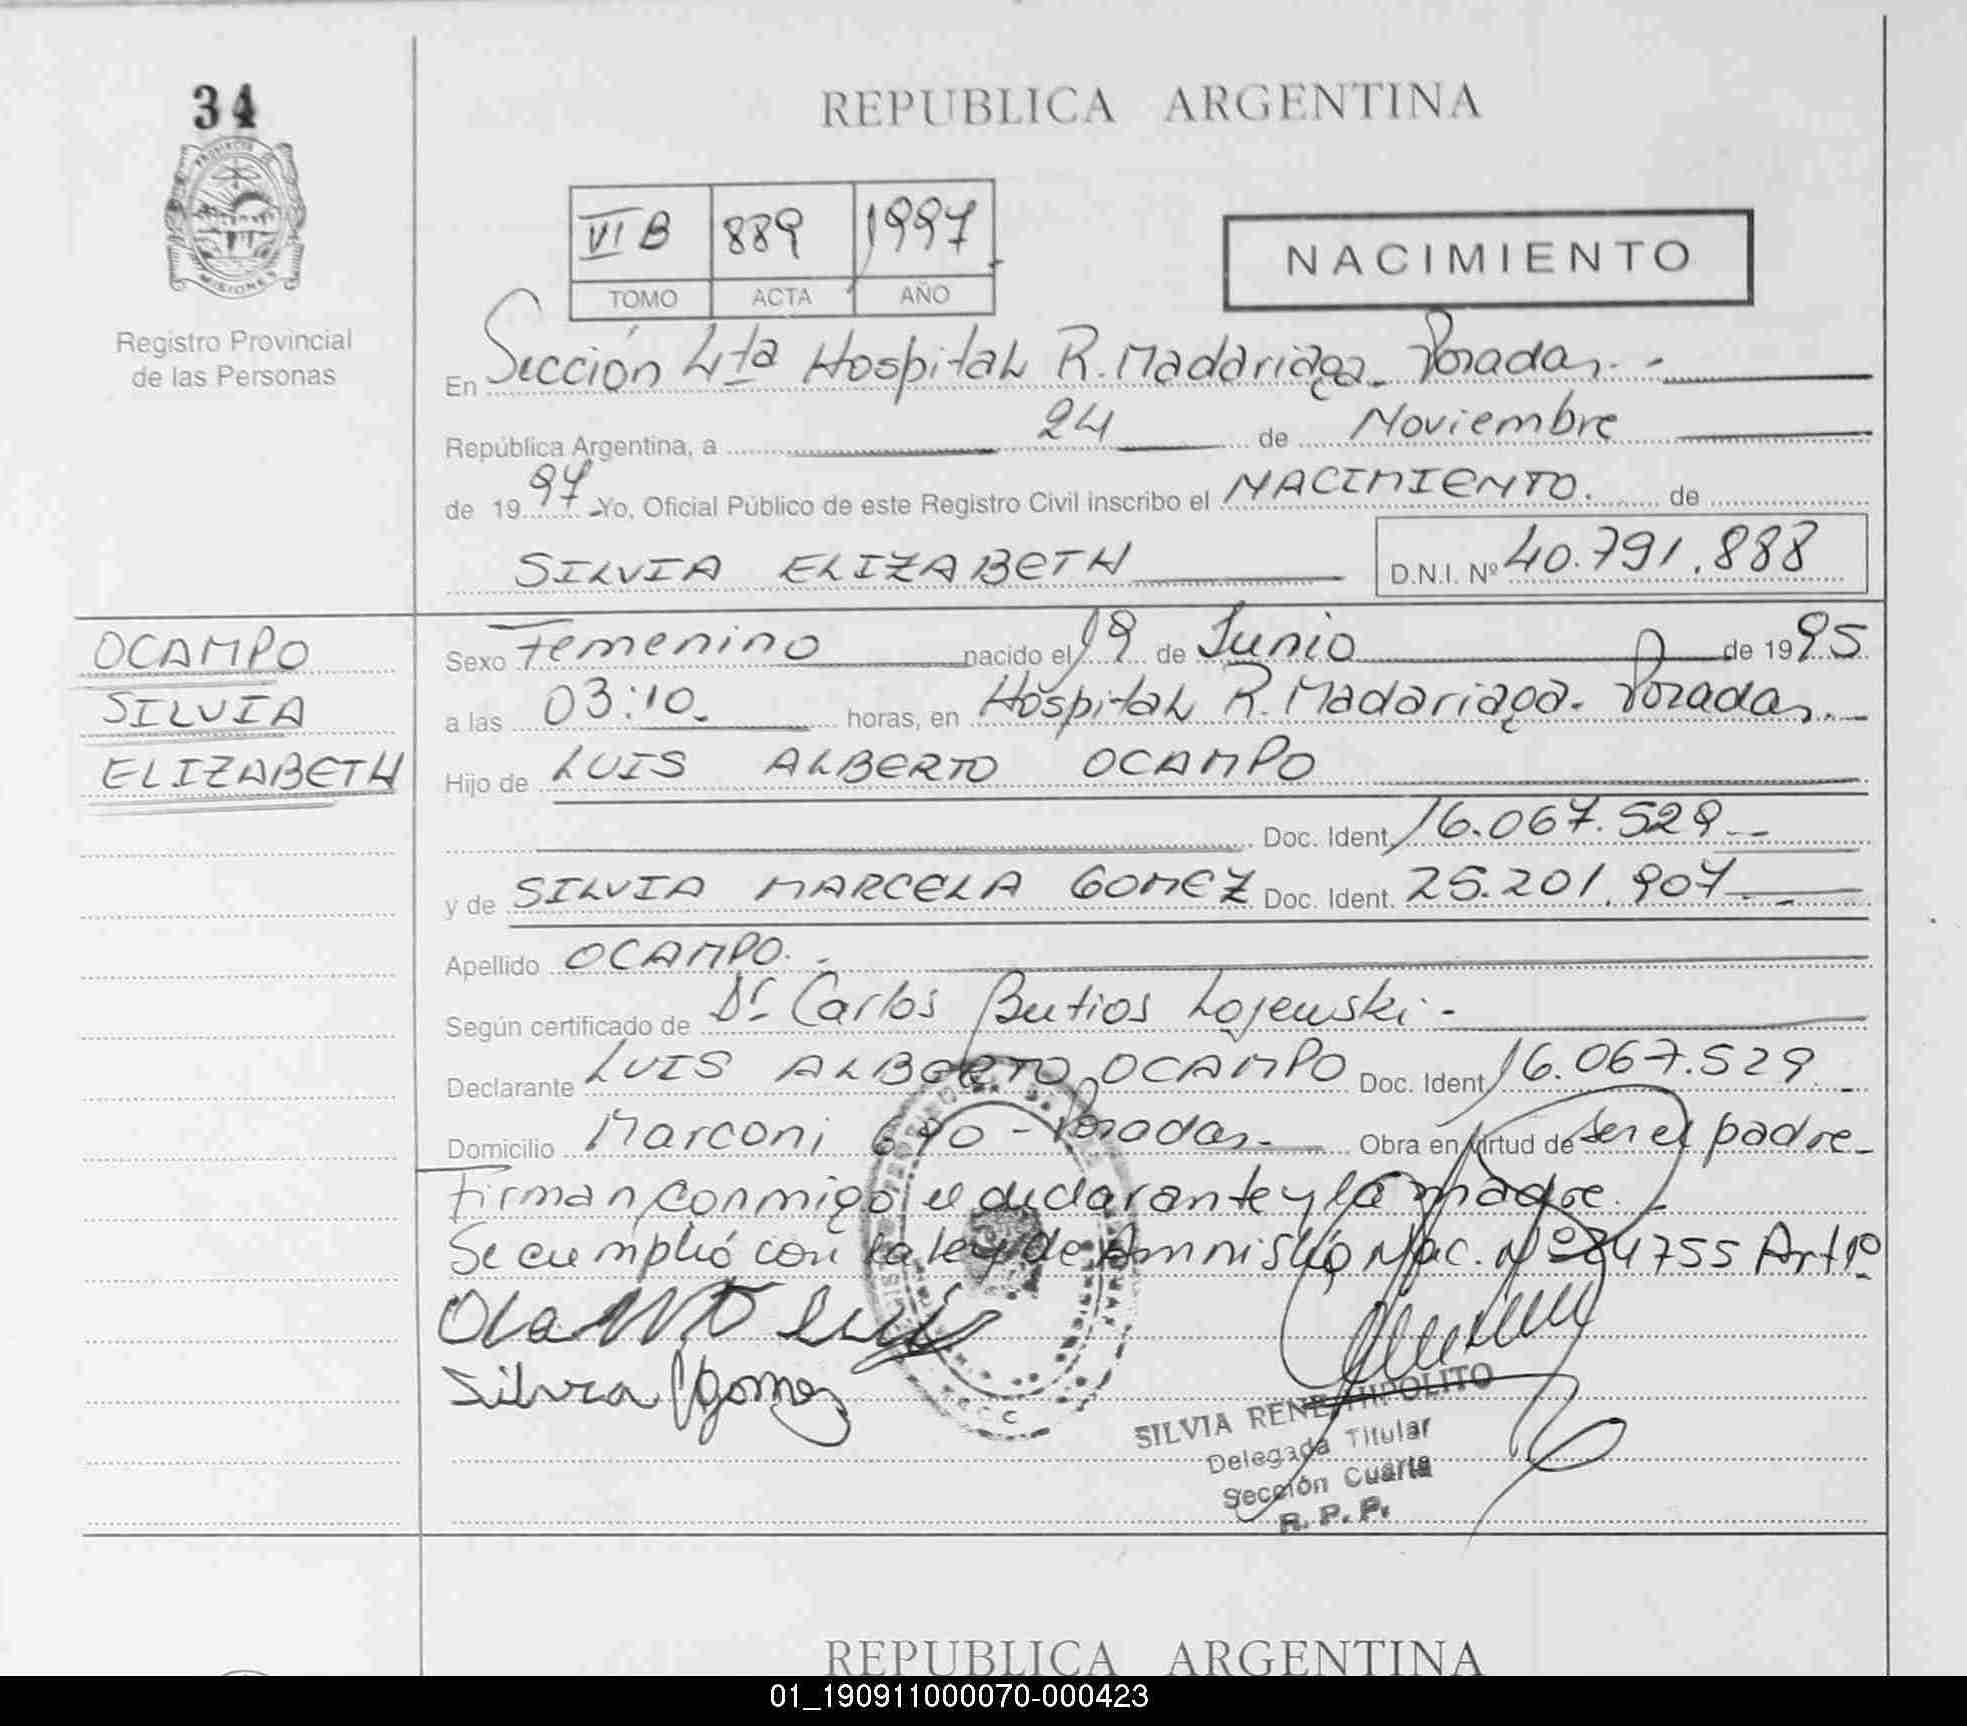 34
PROVINCIA DE
MISIONES
Registro Provincial
de las Personas
REPUBLICA ARGENTINA
VI B 889 1997
TOMO ACTA AÑO
NACIMIENTO
En Sección 4ta Hospital R. Madariaga - Posadas. -
República Argentina, a 24 de Noviembre
de 1997 Yo, Oficial Público de este Registro Civil inscribo el NACIMIENTO. de
SILVIA ELIZABETH D.N.I. Nº 40.791.888
OCAMPO
SILVIA
ELIZABETH
Sexo Femenino nacido el 19 de Junio de 1995
a las 03:10. horas, en Hospital R. Madariaga. Posadas. -
Hijo de LUIS ALBERTO OCAMPO
Doc. Ident. 16.067.529 -
y de SILVIA MARCELA GOMEZ Doc. Ident. 25.201.907 -
Apellido OCAMPO. -
Según certificado de Dr. Carlos Butios Lojewski -
Declarante LUIS ALBERTO OCAMPO Doc. Ident 16.067.529. -
Domicilio Marconi 690 - Posadas. - Obra en virtud de ser el padre -
Firman conmigo el declarante y la madre. -
Se cumplió con la ley de Amnistía Nac. Nº 24755 Art 1º
Ocampo Luis
Silvia Gomez
SILVIA RENE HIPOLITO
Delegada Titular
Sección Cuarta
R. P. P.
REPUBLICA ARGENTINA
01_190911000070-000423